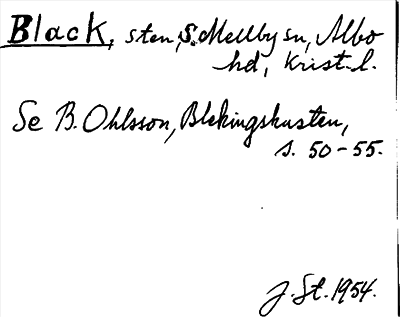 Black, sten, S. Mellby sn, Albo
hd, Krist. l.
Se B. Ohlsson, Blekingskusten,
s. 50-55.
J. St. 1954.